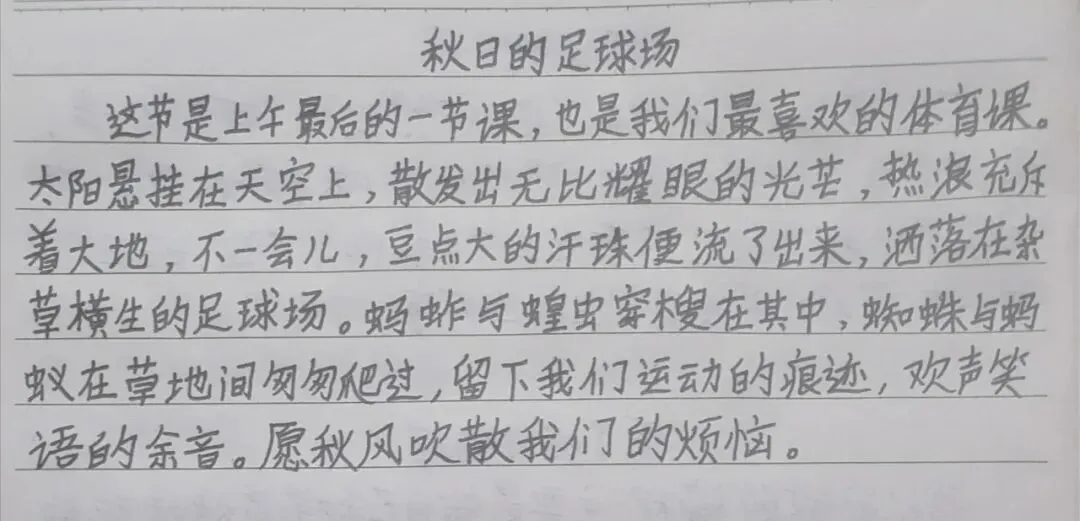 秋日的足球场
这节是上午最后的一节课，也是我们最喜欢的体育课。
太阳悬挂在天空上，散发出无比耀眼的光芒，热浪充斥
着大地，不一会儿，豆点大的汗珠便流了出来，洒落在杂
草横生的足球场。蚂蚱与蝗虫穿梭在其中，蜘蛛与蚂
蚁在草地间匆匆爬过，留下我们运动的痕迹，欢声笑
语的余音。愿秋风吹散我们的烦恼。